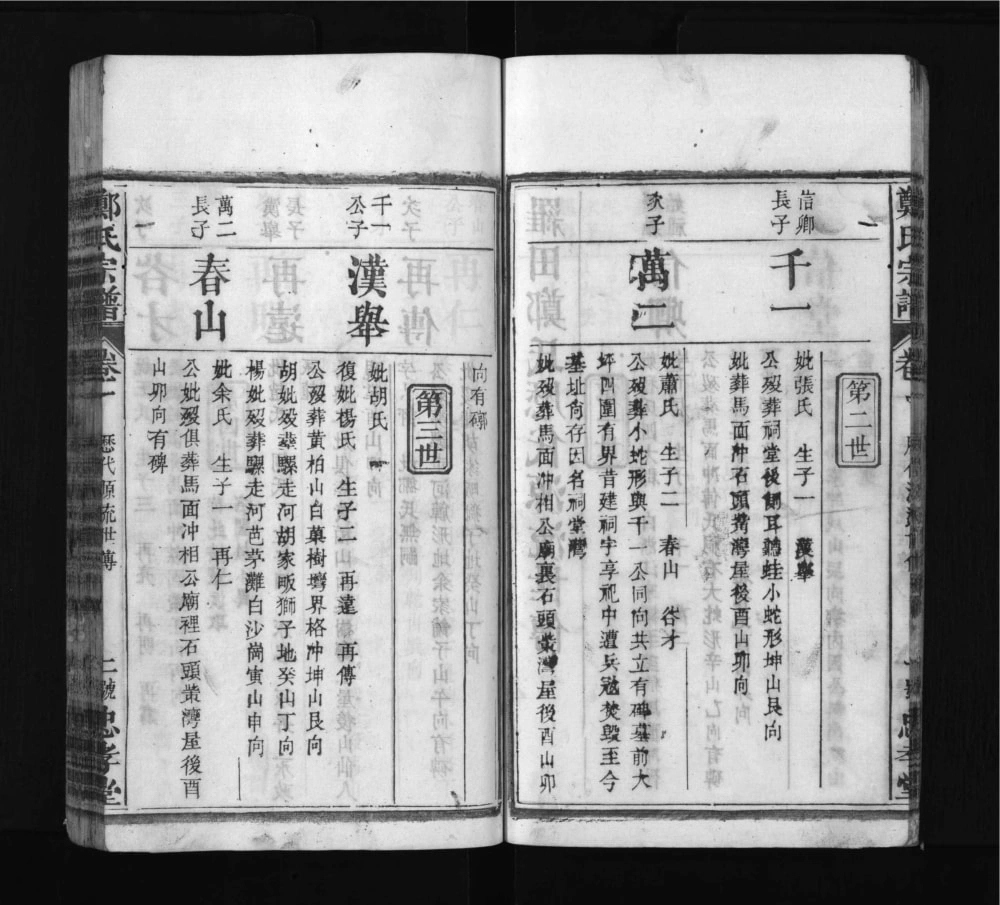 鄭氏宗譜
卷一
忠孝堂
第二世
信卿
長子
千一
妣張氏 生子一 漢舉
公歿葬祠堂後側耳聽蛙小蛇形坤山艮向
妣葬馬面冲石頭叢灣屋後酉山卯向
次子
萬二
妣蕭氏 生子二 春山 谷才
公歿葬小蛇形與千一公同向共立有碑墓前大
坪四圍有界昔建祠宇享祀中遭兵冦焚毀至今
基址尙存因名祠堂灣
妣歿葬馬面冲相公廟裏石頭叢灣屋後酉山卯
向有碑
第三世
千一
公子
漢舉
妣胡氏
復妣楊氏 生子二 再遠 再傳
公歿葬黃柏山白菓樹塆界格冲坤山艮向
胡妣歿葬騾走河胡家畈獅子地癸山丁向
楊妣歿葬騾走河芭茅灘白沙崗寅山申向
萬二
長子
春山
妣余氏 生子一 再仁
公妣歿俱葬馬面冲相公廟裡石頭叢灣屋後酉
山卯向有碑
鄭氏宗譜
卷一
歷代源流世傳
二號
忠孝堂